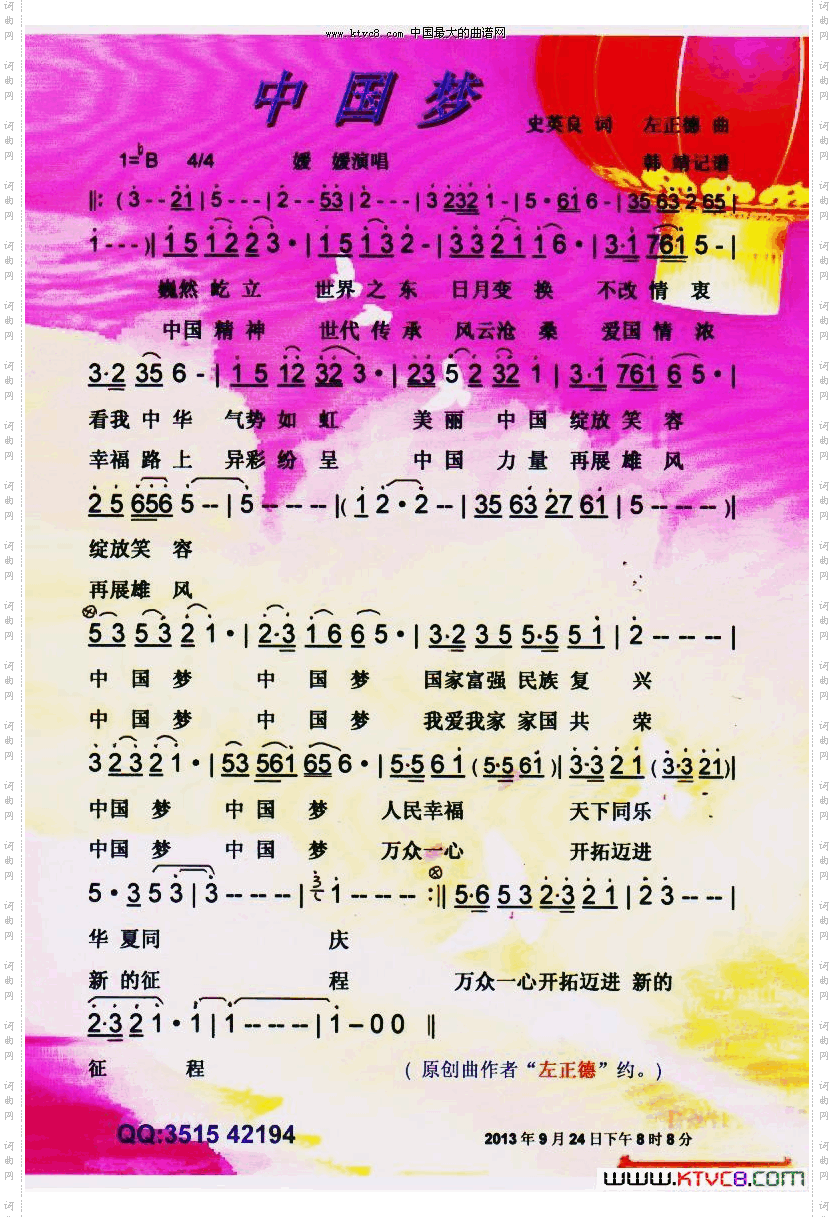 www.ktvc8.com 中国最大的曲谱网
中国梦
史英良 词 左正德 曲
1=♭B 4/4 媛 媛演唱 韩 婧记谱
‖: ( 3 - - 21 | 5 - - - | 2 - - 53 | 2 - - - | 3 232 1 - | 5 · 61 6 - | 35 63 2 65 |
1 - - - ) | 1 5 1 2 2 3 · | 1 5 1 3 2 - | 3 3 2 1 1 6 · | 3·1 761 5 - |
巍然 屹 立 世界 之 东 日月变 换 不改 情 衷
中国 精 神 世代 传 承 风云沧 桑 爱国 情 浓
3·2 35 6 - | 1 5 12 32 3 · | 23 5 2 32 1 | 3·1 761 6 5 · |
看我 中 华 气势 如 虹 美 丽 中 国 绽放 笑 容
幸福 路 上 异彩 纷 呈 中 国 力 量 再展 雄 风
2 5 656 5 - - | 5 - - - - | ( 1 2 · 2 - - | 35 63 27 61 | 5 - - - - ) |
绽放笑 容
再展雄 风
5 3 5 3 2 1 · | 2·3 1 6 6 5 · | 3·2 3 5 5·5 5 1 | 2 - - - - |
中 国 梦 中 国 梦 国家富强 民族 复 兴
中 国 梦 中 国 梦 我爱我家 家国 共 荣
3 2 3 2 1 · | 53 561 65 6 · | 5·5 6 1 ( 5·5 61 ) | 3·3 2 1 ( 3·3 21 ) |
中国 梦 中 国 梦 人民幸福 天下同乐
中国 梦 中 国 梦 万众一心 开拓迈进
5 · 3 5 3 | 3 - - - - | 3 1 - - - - :‖ 5·6 5 3 2·3 2 1 | 2 3 - - - |
华 夏同 庆
新 的征 程 万众一心开拓迈进 新的
2·3 2 1 · 1 | 1 - - - - | 1 – 0 0 ‖
征 程 ( 原创曲作者“左正德”约。)
QQ:3515 42194 2013 年 9 月 24 日下午 8 时 8 分
www.KTVC8.com